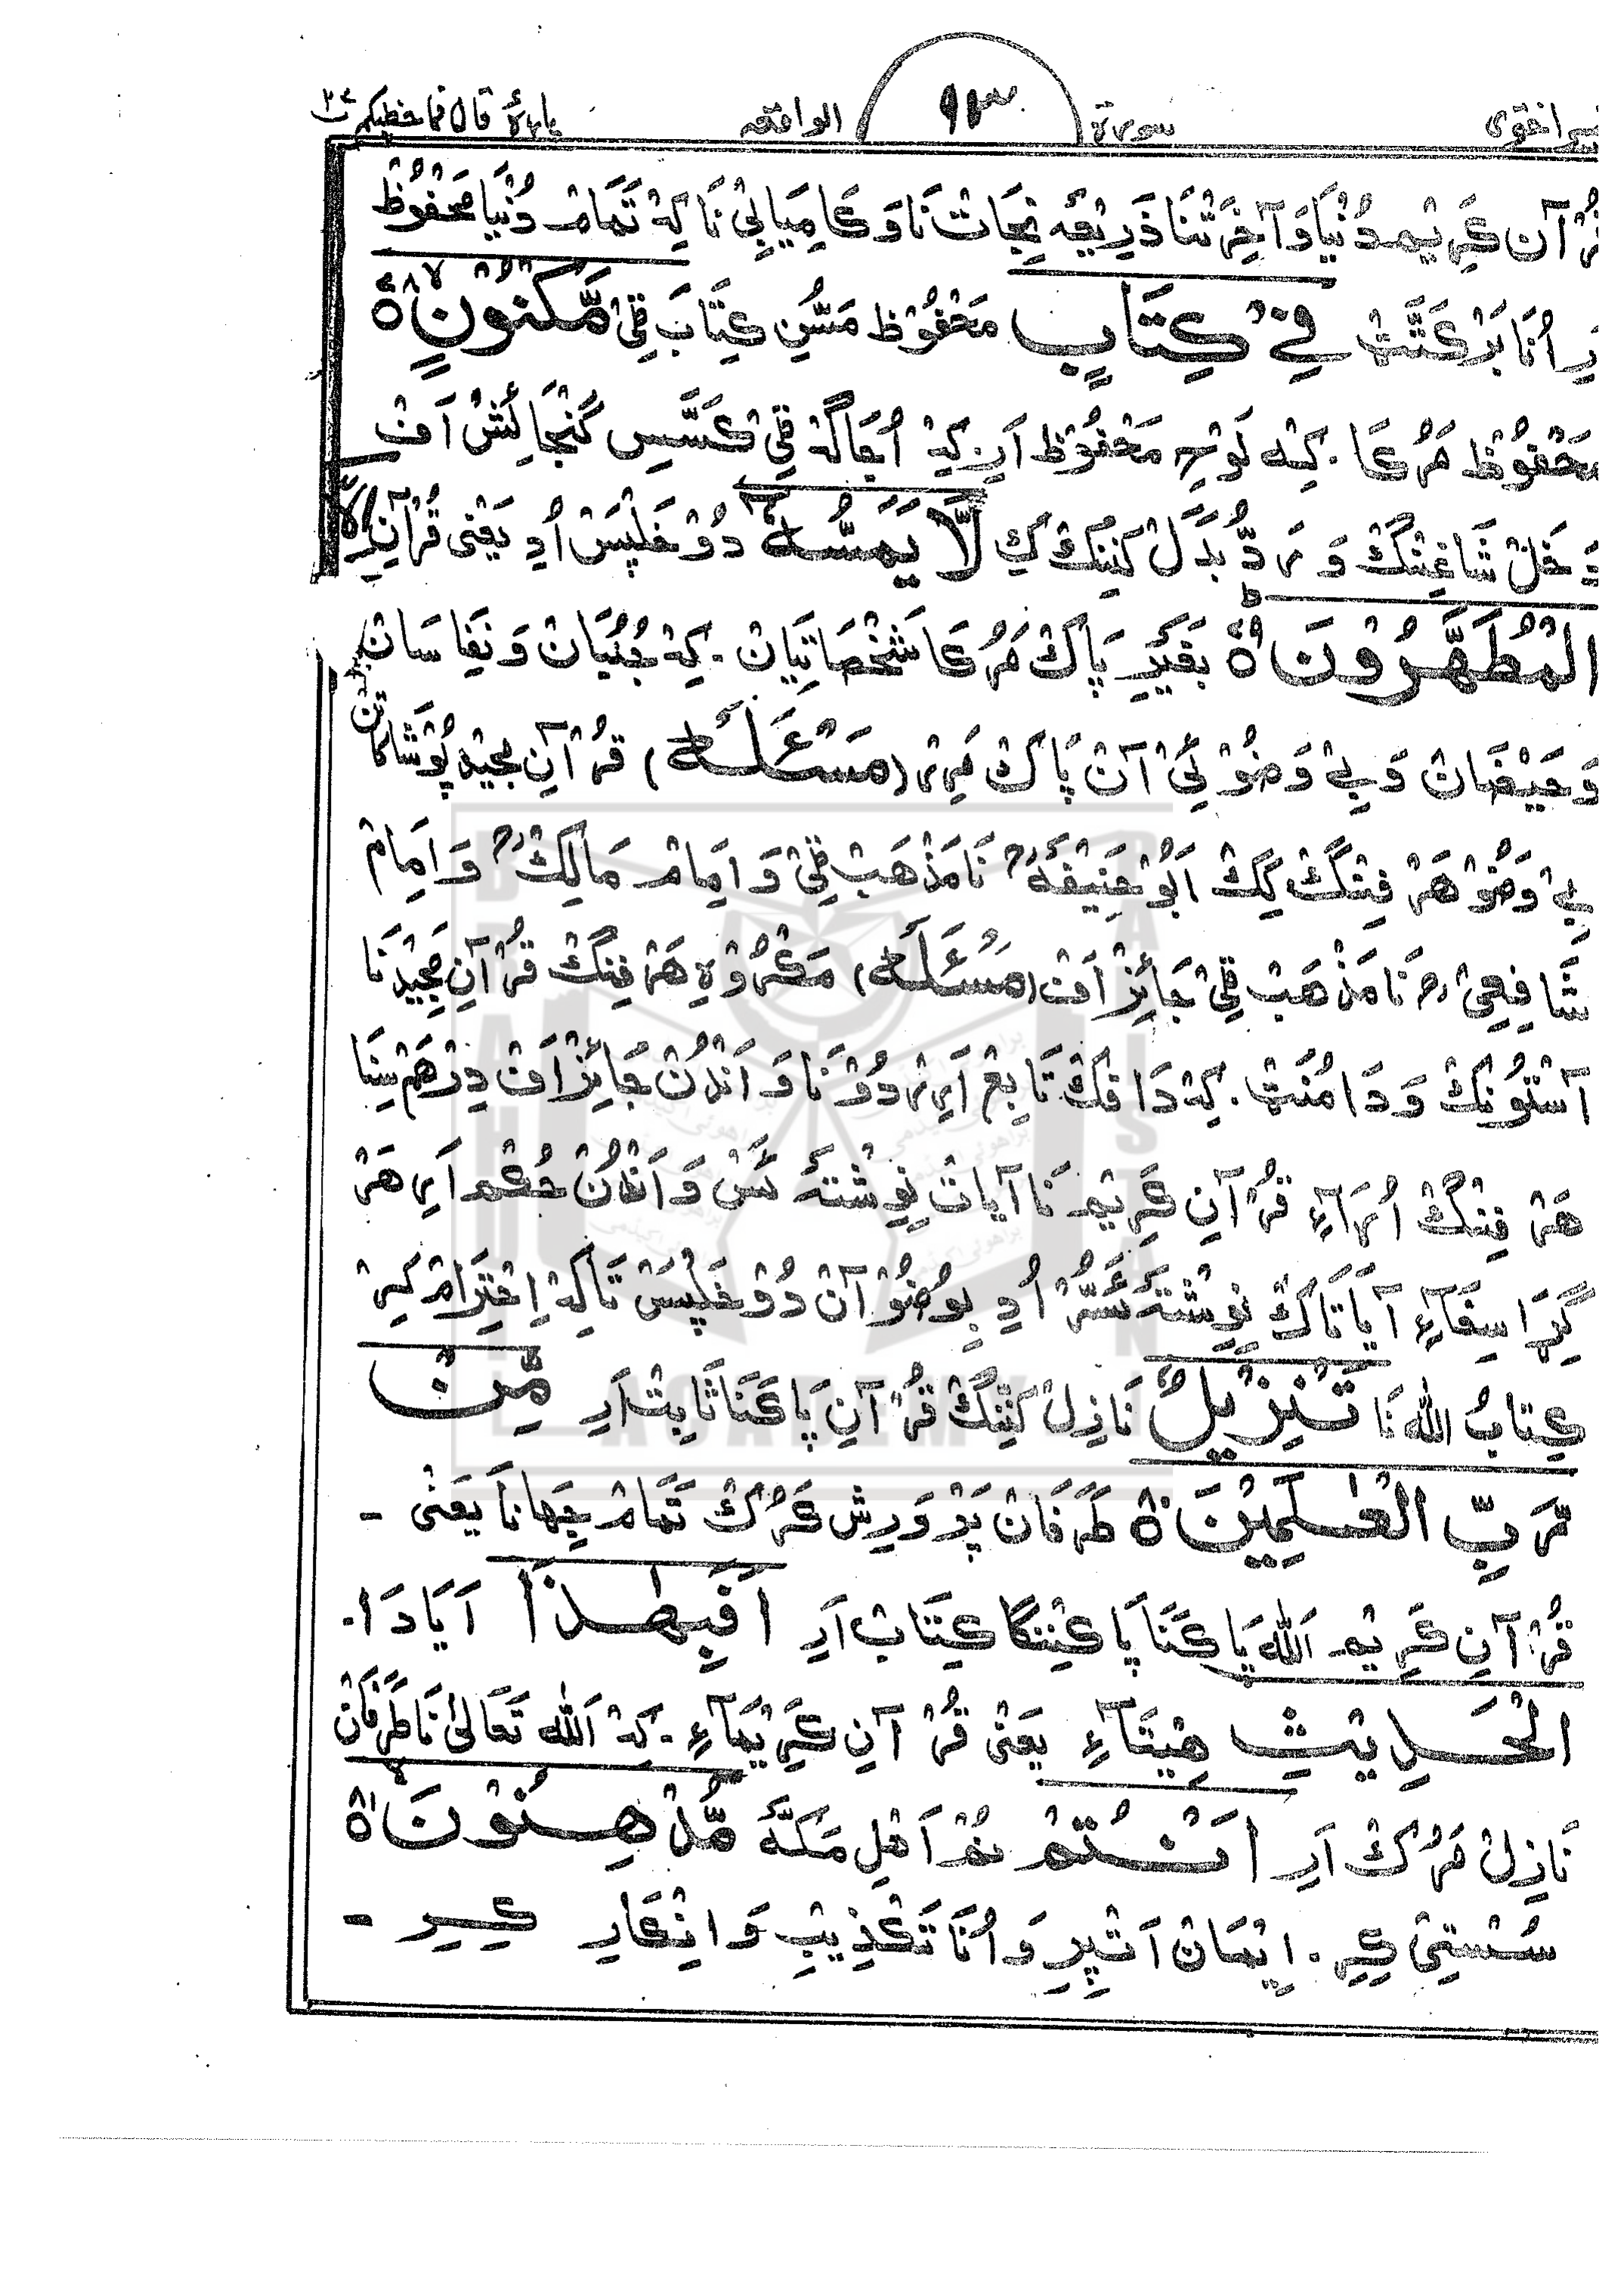 سورة ٩٣ الواقعه پارۀ قال فما خطبکم ٢٧
قُرْآن کَرِیْم دُنْیَا وَ آخِرَتْنَا ذَرِیْعَہ نِجَاتْ نَا وَ کَامِیَابِیْ نَا کِہْ تَمَامْ دُنْیَا مَحْفُوْظ
اُنَا بَرْکَتَّٹْ فِیْ کِتَابٍ مَحْفُوْظ مَسُّنِ کِتَابَ قِیْ مَّکْنُوْنٍ ۝٧٨
مَحْفُوْظ مَرُکَا. کِہ لَوْحِ مَحْفُوْظ اَرِ. کِہْ اُنَاکَہْ قِیْ کَسَّسِ گُنْجَائِشْ اَفْ
دَخَلْ شَاغِنْنگْ وَ رَدُّ بَدَلْ کَنِنگْ کِ لَّا یَمَسُّہٗٓ دُوْ خَلْپَسْ اُدِ یَعْنٰی قُرْآنِ اِلَّا
الْمُطَهَّرُوْنَ ۝٧٩ بَغَیْرِ پَاکْ مَرُکَا شَخْصَاتِیَانْ. کِہْ جُنُبَانْ وَ نِفَاسَانْ
وَ حَیْضَانْ وَ بِیْ وَضُوْ ئِیْ آنْ پَاکْ مَرِرْ (مَسْئَلَہ) قُرْآنِ مَجِیْدِ پُوْشَاکَا تَنْ
بِیْ وَضُوْ ھَرْ فِنْنگْ اَبُوْ حَنِیْفَہ ؒ نَا مَذْھَبْ قِیْ وَ اِمَامْ مَالِکْ ؒ وَ اِمَامْ
شَافِعِیْ ؒ نَا مَذْھَبْ قِیْ جَائِزْ اَفْ (مَسْئَلَہ) مَکْرُوْہِ ھَرْ فِنْنگْ قُرْآنِ مَجِیْدنَا
آسْتُوْنکْ وَ دَامُنَٹْ. کِہْ دَا فْکْ تَابِعْ اَرِرْ دُوْنَا وَ اَنْدُنْ جَائِزْ اَفْ دِرْھَمْ سِنَا
ھَرْ فِنْنگْ اُرَآءِ قُرْآنِ کَرِیْم نَا آیَاتْ نِوِشْتَہ مَسْ وَ اَنْدُنْ حُکْم اَرِ ھَرْ
گِرَا سِفَاءِ آیَاتَاکْ نِوِشْتَہ مَسُّرْ اُدِ بِوُضُوْ آنْ دُوْ خَلْپَسْ تَاکِہْ اِحْتِرَامْ کِرْ
کِتَابُ اللہ نَا تَنْزِیْلٌ نَازِلْ کَنِّنگْ قُرْآنِ پَاکَنَا ثَابِتْ اَرِ مِّنْ
رَّبِّ الْعٰلَمِیْنَ ۝٨٠ طَرَفَانْ پَرْوَرِش کَرُکْ تَمَامْ جِهَانَا یَعْنٰی -
قُرْآنِ کَرِیْم اَللہ پَاکَنَا پَاکِنِنْگَا کِتَابْ اَرِ اَفَبِهٰذَا آیَا دَا.
الْحَدِیْثِ ھِیْتَآءِ یَعْنٰی قُرْآنِ کَرِیْمَآءِ. کِہْ اَللہ تَعَالٰی نَا طَرَفَانْ
نَازِلْ مَرُکْ اَرِ اَنْتُمْ نُمْ اَھْلِ مَکَّہ مُّدْهِنُوْنَ ۝٨١
سُسْتِیْ کِرِ. اِیْمَانْ اَتَپِرِ وَ اُنَا تَکْذِیْبْ وَ اِنْکَارِ کِرِ -